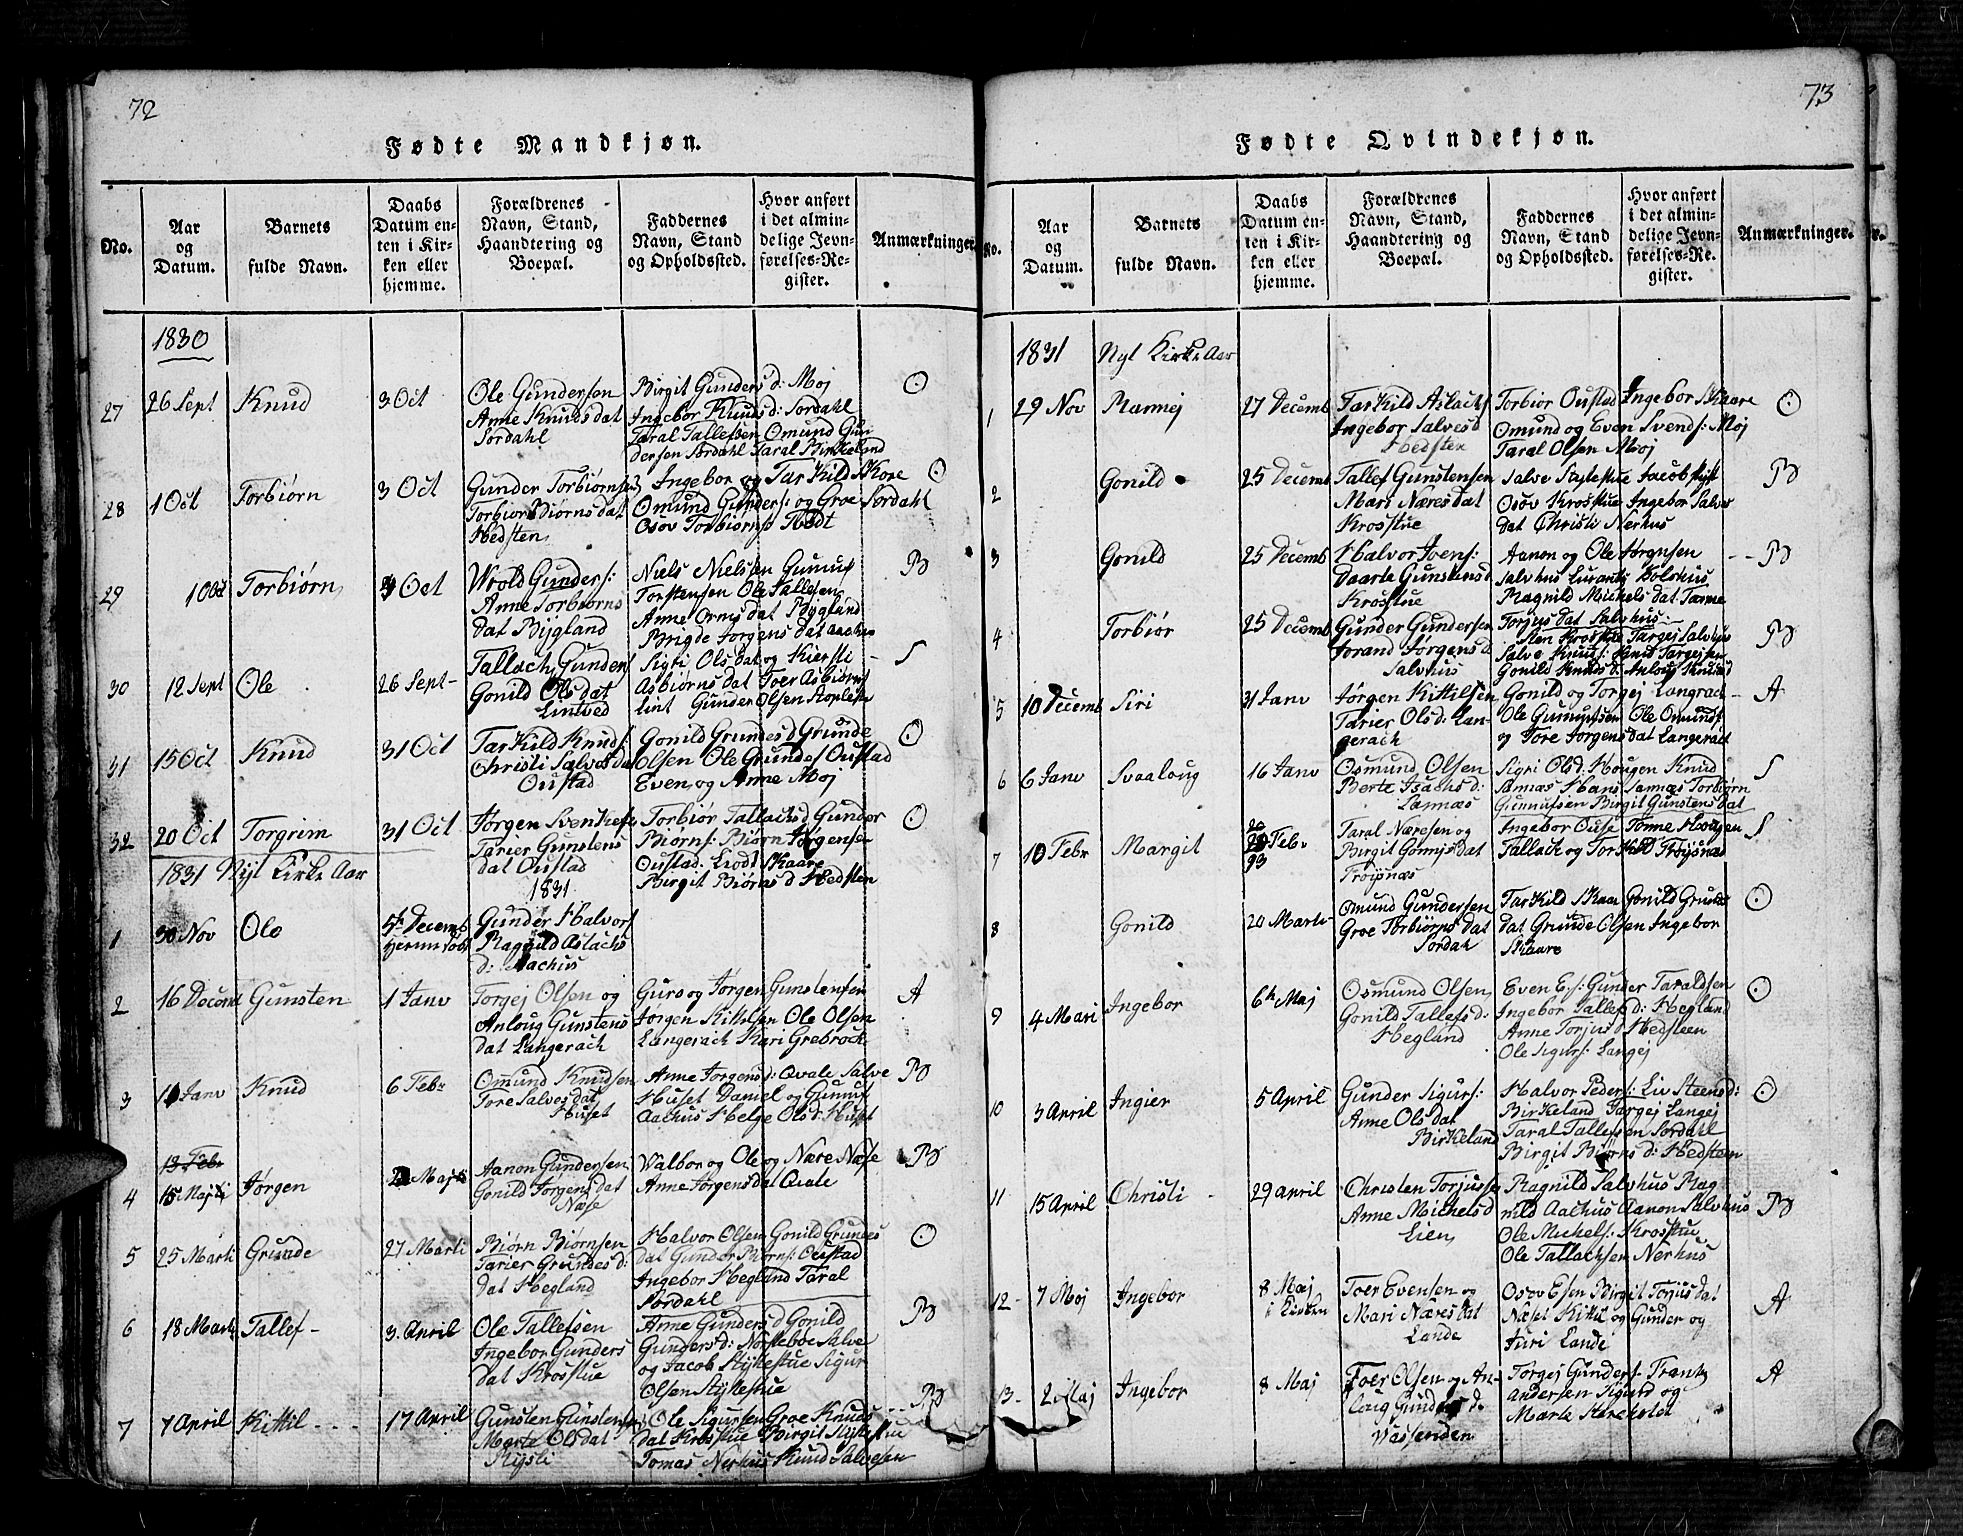 72
Fødte Mandkjøn.
No.
Aar
og
Datum.
Barnets
fulde Navn.
Daabs
Datum en-
ten i Kir-
ken eller
hjemme.
Forældrenes
Navn, Stand,
Haandtering og
Boepæl.
Faddernes
Navn, Stand
og Opholdssted.
Hvor anført
i det almin-
delige Jevn-
førelses-Re-
gister.
Anmærkninger.
1830
27
26 Sept
Knud
3 Oct
Ole Gundersen
Anne Knuds dat
Sordahl
Birgit Gunders d: Moj
Ingebor Knuds d: Sordahl
Taral Tallefsen Omund Gun
dersen Sordahl Taral Birkeland
O
28
1 Oct
Torbiørn
3 Oct
Gunder Torbiørnsen
Torbior Biørns dat
Hedsten
Ingebor og Tarkild Skore
Omund Gunders: og Groe Sordahl
Osov Torbiørns
O
29
1 Oct
Torbiørn
Oct
Wrold Gunders:
Anne Torbiørns
dat Bijgland
Niels Nielsen Gunuf
Torstensen Ole Tallefsen
Anne Orms dat Bygland
Brigde Jorgens dat Aachus
B
30
12 Sept
Ole
26 Sept
Tallach Gunders
Gonild Ols dat
Lintved
Sigri Ols dat og Kiersti
Asbiørns dat Toer Asbiørns
lint Gunder Olsen
S
31
15 Oct
Knud
31 Oct
Tarkild Knuds:
Christi Salves dat
Oustad
Gonild Grundes d Grunde
Olsen Ole Grundes Oustad
Even og Anne Moj
O
32
20 Oct
Torgrim
31 Oct
Jørgen Svenkes
Tarier Gunstens
dat Oustad
Torbior Tallachs d Gunder
Biørns: Biørn Jørgensen
Oustad Liodt Skaare
Birgit Biørns d Hedsten
O
1831 Nyt Kirke Aar
1831
1
30 Nov
Ole
5te Decemb
Hjemme døbt
Gunder Halvors
Ragnild Aslachs
d: Aachus
2
16 Decemb
Gunsten
1 Janv
Torgej Olsen og
Anloug Gunstens
dat Langerach
Guro og Jørgen Gunstensen
Jorgen Kittilsen Ole Olsen
Langerach Kari Grebrock
A
3
Janv
Knud
6 Febr
Omund Knudsen
Tore Salves dat
Huset
Anne Jorgens d: Qvale Salve
Huset Daniel og Gunuf
Aachus Helge Ols d: Huset
B
4
13 Feb:
15 Majii
Jørgen
Maji
Aanon Gundersen
Gonild Jorgens dat
Næse
Walbor og Ole og Nære Næse
Anne Jørgens dat Qvale
B
5
25 Marti
Grunde
27 Marti
Biørn Biørnsen
Tarier Grundes d:
dat Hegland
Halvor Olsen Gonild Grundes
dat Gunder Biørns: Oustad
Ingebor Hegland Taral
Sordahl
O
6
18 Marti
Tallef
3 April
Ole Tallefsen
Ingebor Gunders
dat Krosstue
Anne Gunders d Gonild
Gunders d: Norsteboe Salve
og Jacob Stykestue Sigur
Olsen Stykestue
B
7
7 April
Kittil
17 April
Gunsten Gunstensen
Marte Ols dat
Rysti
Ole Sigursen Groe Knuds
dat Krosstue Birgit Stykestue
Tomas Nerhus Knud Salvesen
B
73
Fødte Qvindekjøn.
No.
Aar
og
Datum.
Barnets
fulde Navn.
Daabs
Datum en-
ten i Kir-
ken eller
hjemme.
Forældrenes
Navn, Stand,
Haandtering og
Boepæl.
Faddernes
Navn, Stand
og Opholdssted.
Hvor anført
i det almin-
delige Jevn-
førelses-Re-
gister.
Anmærkninger.
1831 Nyt Kirke Aar
1
29 Nov
Rannej
27 Decemb
Tarkild Aslachs
Ingebor Salves d
Hedsten
Torbior Oustad Ingebor Skaare
Omund og Even Svends: Moj
Taral Olsen Moj
O
2
Gonild
25 Decemb
Tallef Gunstensen
Mari Næres dat
Krosstue
Salve Stykestue Jacob
Osov Krosstue Ingebor Salves
dat Christi Nerhus
B
3
Gonild
25 Decemb
Halvor Ivens:
Daarte Gunstens d
Krosstue
Aanon og Ole Jørgensen
Salvhus Lurants
Ragnild Michels dat
Torjus dat Salvhus
B
4
Torbiør
25 Decemb
Gunder Gundersen
Jorand Jorgens d
Salvhus
Sten Krosstue Targej Salvhus
Salve Knuds: Knud Targejsen
Gonild Knuds d: Anloug Knuds d
B
5
10 Decemb
Siri
31 Janv
Jørgen Kittilsen
Tarier Ols d: Lan-
gerach
Gonild og Torgej Langrach
Ole Gunnufsen Ole Omunds
og Tore Jorgens dat Langerach
A
6
6 Janv
Svaaloug
16 Janv
Osmund Olsen
Berte Isachs d:
Samnæs
Sigri Ols d: Hougen Knud
Samnæs Hans Samnæs Torbiørn
Gunnufsen Birgit Gunstens dat
S
7
10 Febr
Margit
20 Feb.
Taral Næresen og
Birgit dat
Frøysnæs
Ingebor Ouse Tonne Hougen
Tallach og Torkild Frøysnæs
S
8
Gonild
20 Marti
Omund Gundersen
Groe Torbiørns dat
Sordah
Tarkild Skaa Gonild Grundes
dat Grunde Olsen Ingebor
Skaare
O
9
4 Mari
Ingebor
6te Maj
Osmund Olsen
Gonild Tallefs d:
Hegland
Even E.s: Gunder Taraldsen
Ingebor Tallefs d: Hegland
Anne Torjus d Hedsteen
Ole Sigurs: Langej
O
10
3 April
Ingier
5 April
Gunder Sigurs:
Anne Ols dat
Birkeland
Halvor Peders: Liv Steens d:
Birkeland Targej Langej
Taral Tallefsen Sordahl
Birgit Biørns d: Hedsteen
O
11
15 April
Christi
29 april
Christen Torjussen
Anne Michels d
Lien
Ragnild Salvhus Rag
nild Aachus Aanon Salvhus
Ole Michels: Krosstue
Ole Tallachsen Nerhus
B
12
7 Maj
Ingebor
8 Maj
i Kirken
Toer Evensen og
Mari Næres dat
Lande
Osov Birgit Torjus dat
Næset Kittil og Gunder og
Juri Lande
A
13
2 Maj
Ingebor
8 Maj
Toer Olsen og An-
loug Gunders d:
Wassenden
Torgej Gunders: Frantz
andersen Sigurd og
Marte
A